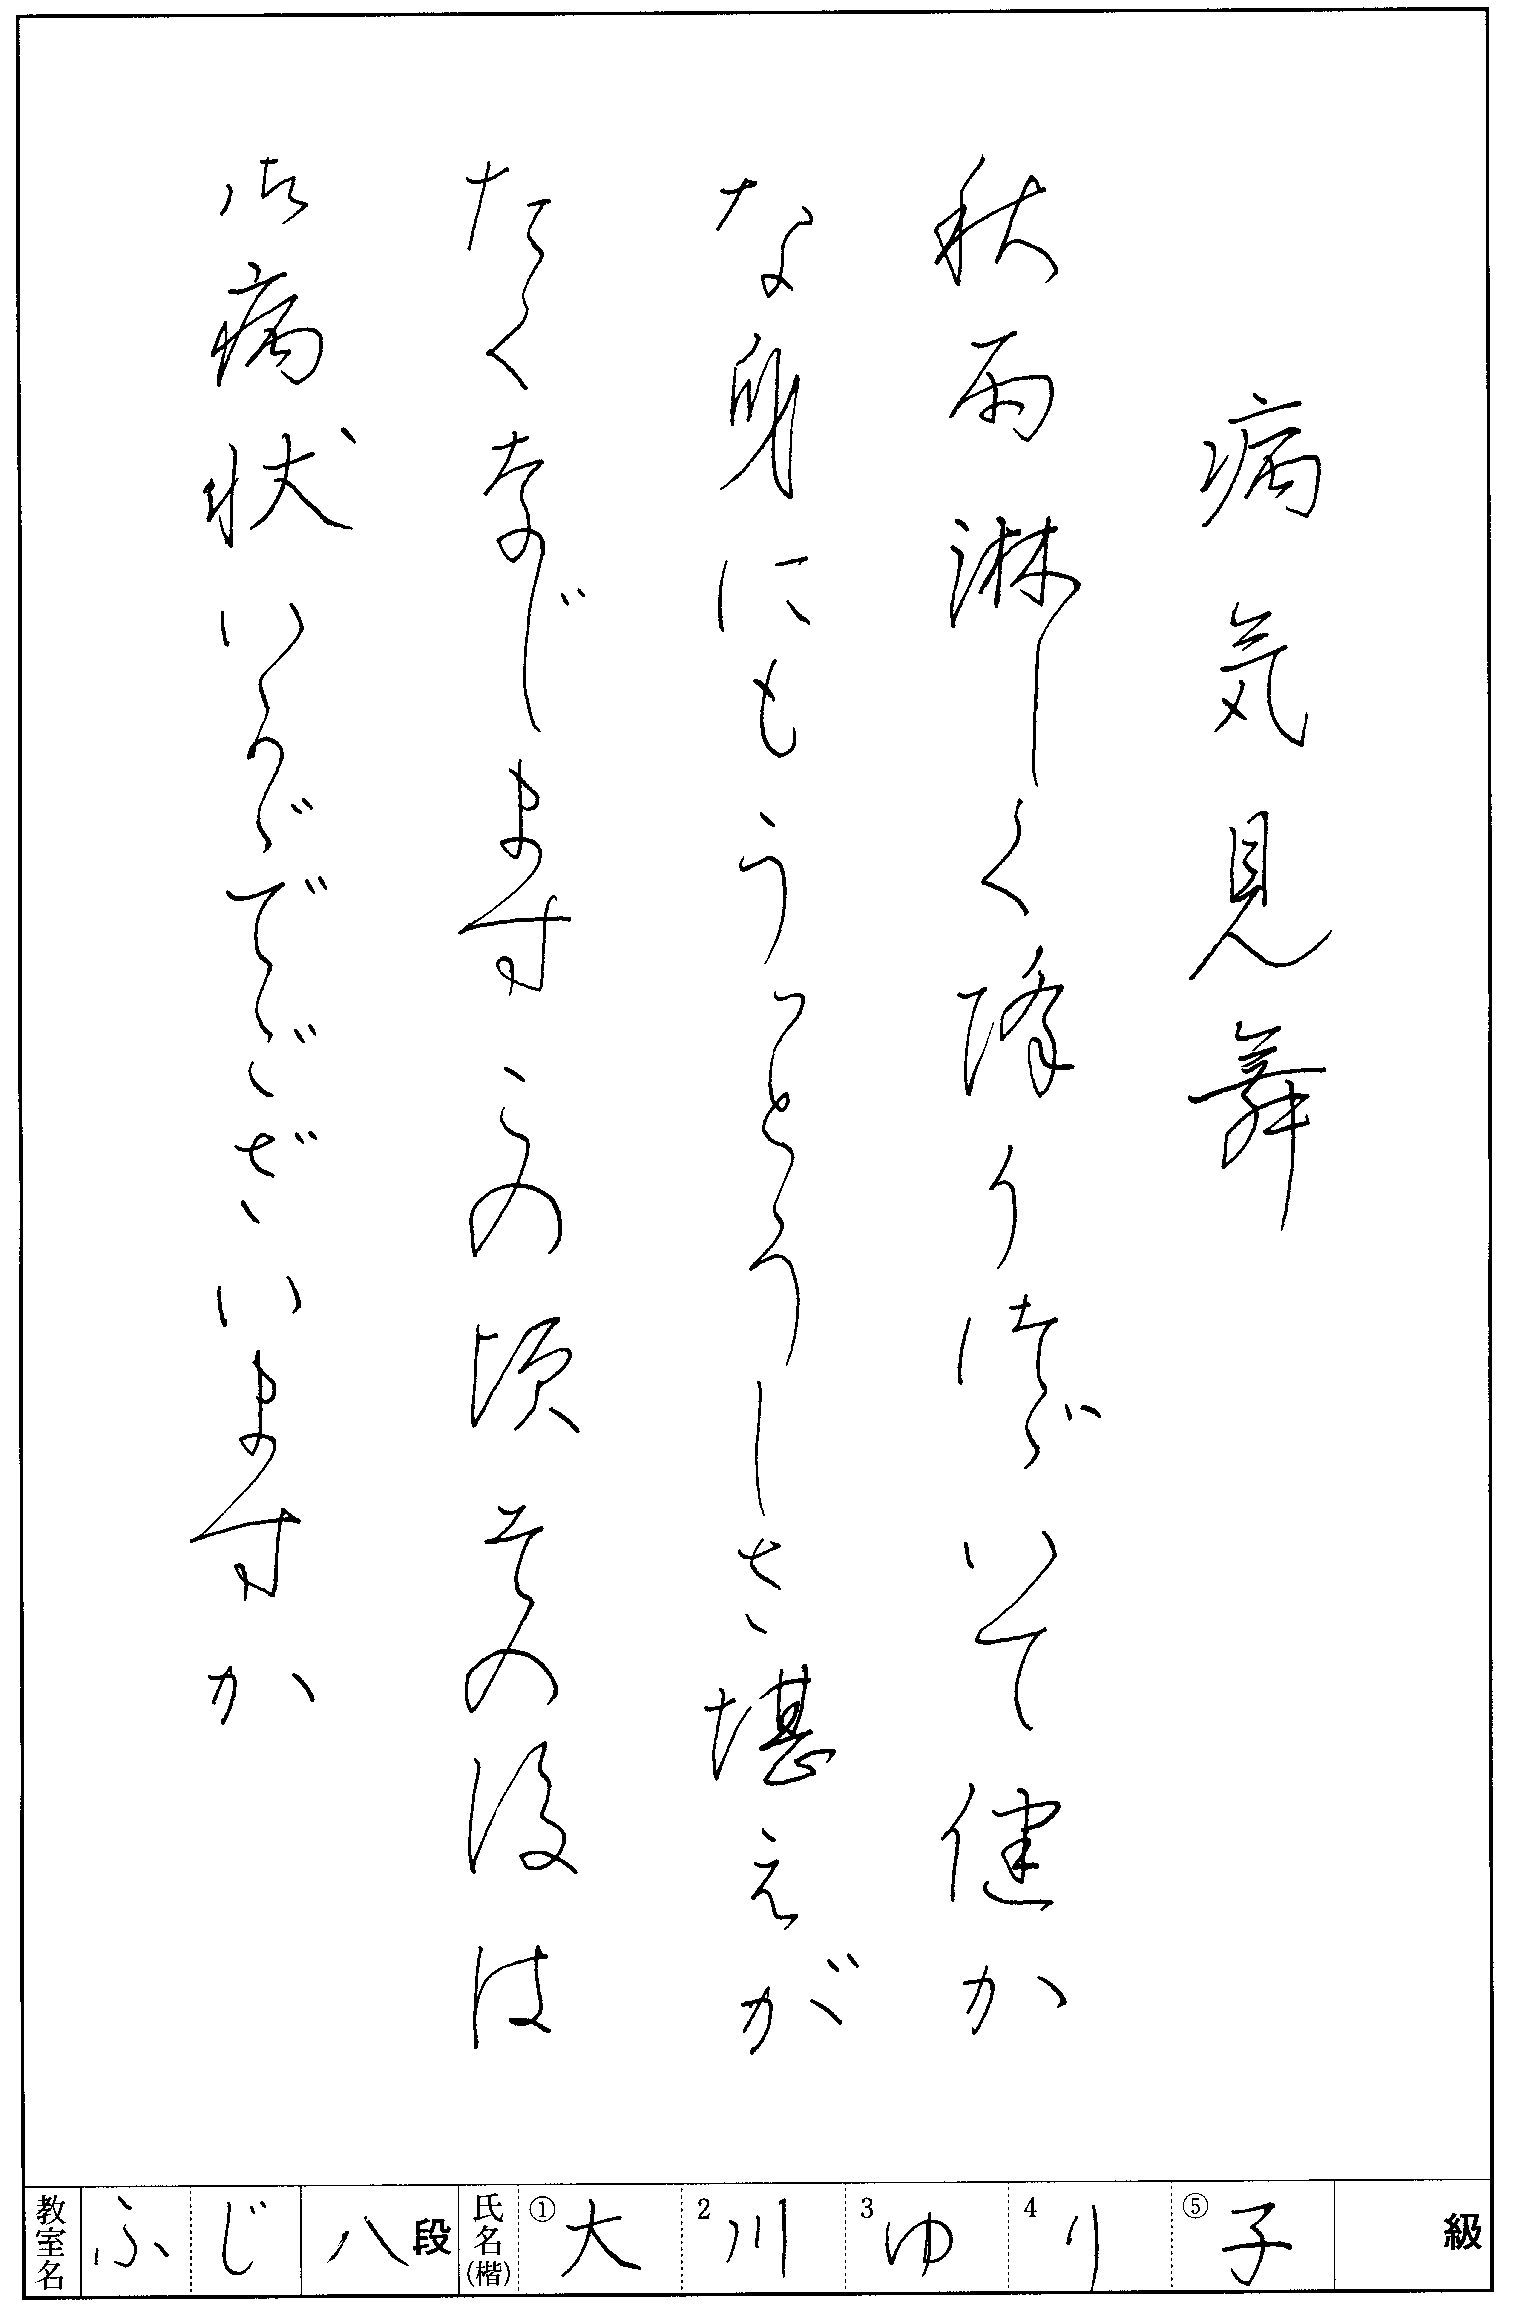 病気見舞
秋雨淋しく降りつづいて健か
な身にもうっとうしさ堪えが
たくなじますこの頃その後は
御病状いかがでございますか
教室名 ふじ 八段 氏名(楷) ①大 2川 3ゆ 4り ⑤子 級